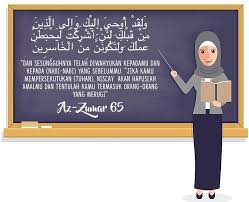 وَلَقَدْ أُوحِيَ إِلَيْكَ وَإِلَى الَّذِينَ
مِنْ قَبْلِكَ لَئِنْ أَشْرَكْتَ لَيَحْبَطَنَّ
عَمَلُكَ وَلَتَكُونَنَّ مِنَ الْخَاسِرِينَ
"DAN SESUNGGUHNYA TELAH DIWAHYUKAN KEPADAMU DAN
KEPADA (NABI-NABI) YANG SEBELUMMU. "JIKA KAMU
MEMPERSEKUTUKAN (TUHAN), NISCAY AKAN HAPUSLAH
AMALMU DAN TENTULAH KAMU TERMASUK ORANG-ORANG
YANG MERUGI"
Az-Zumar 65